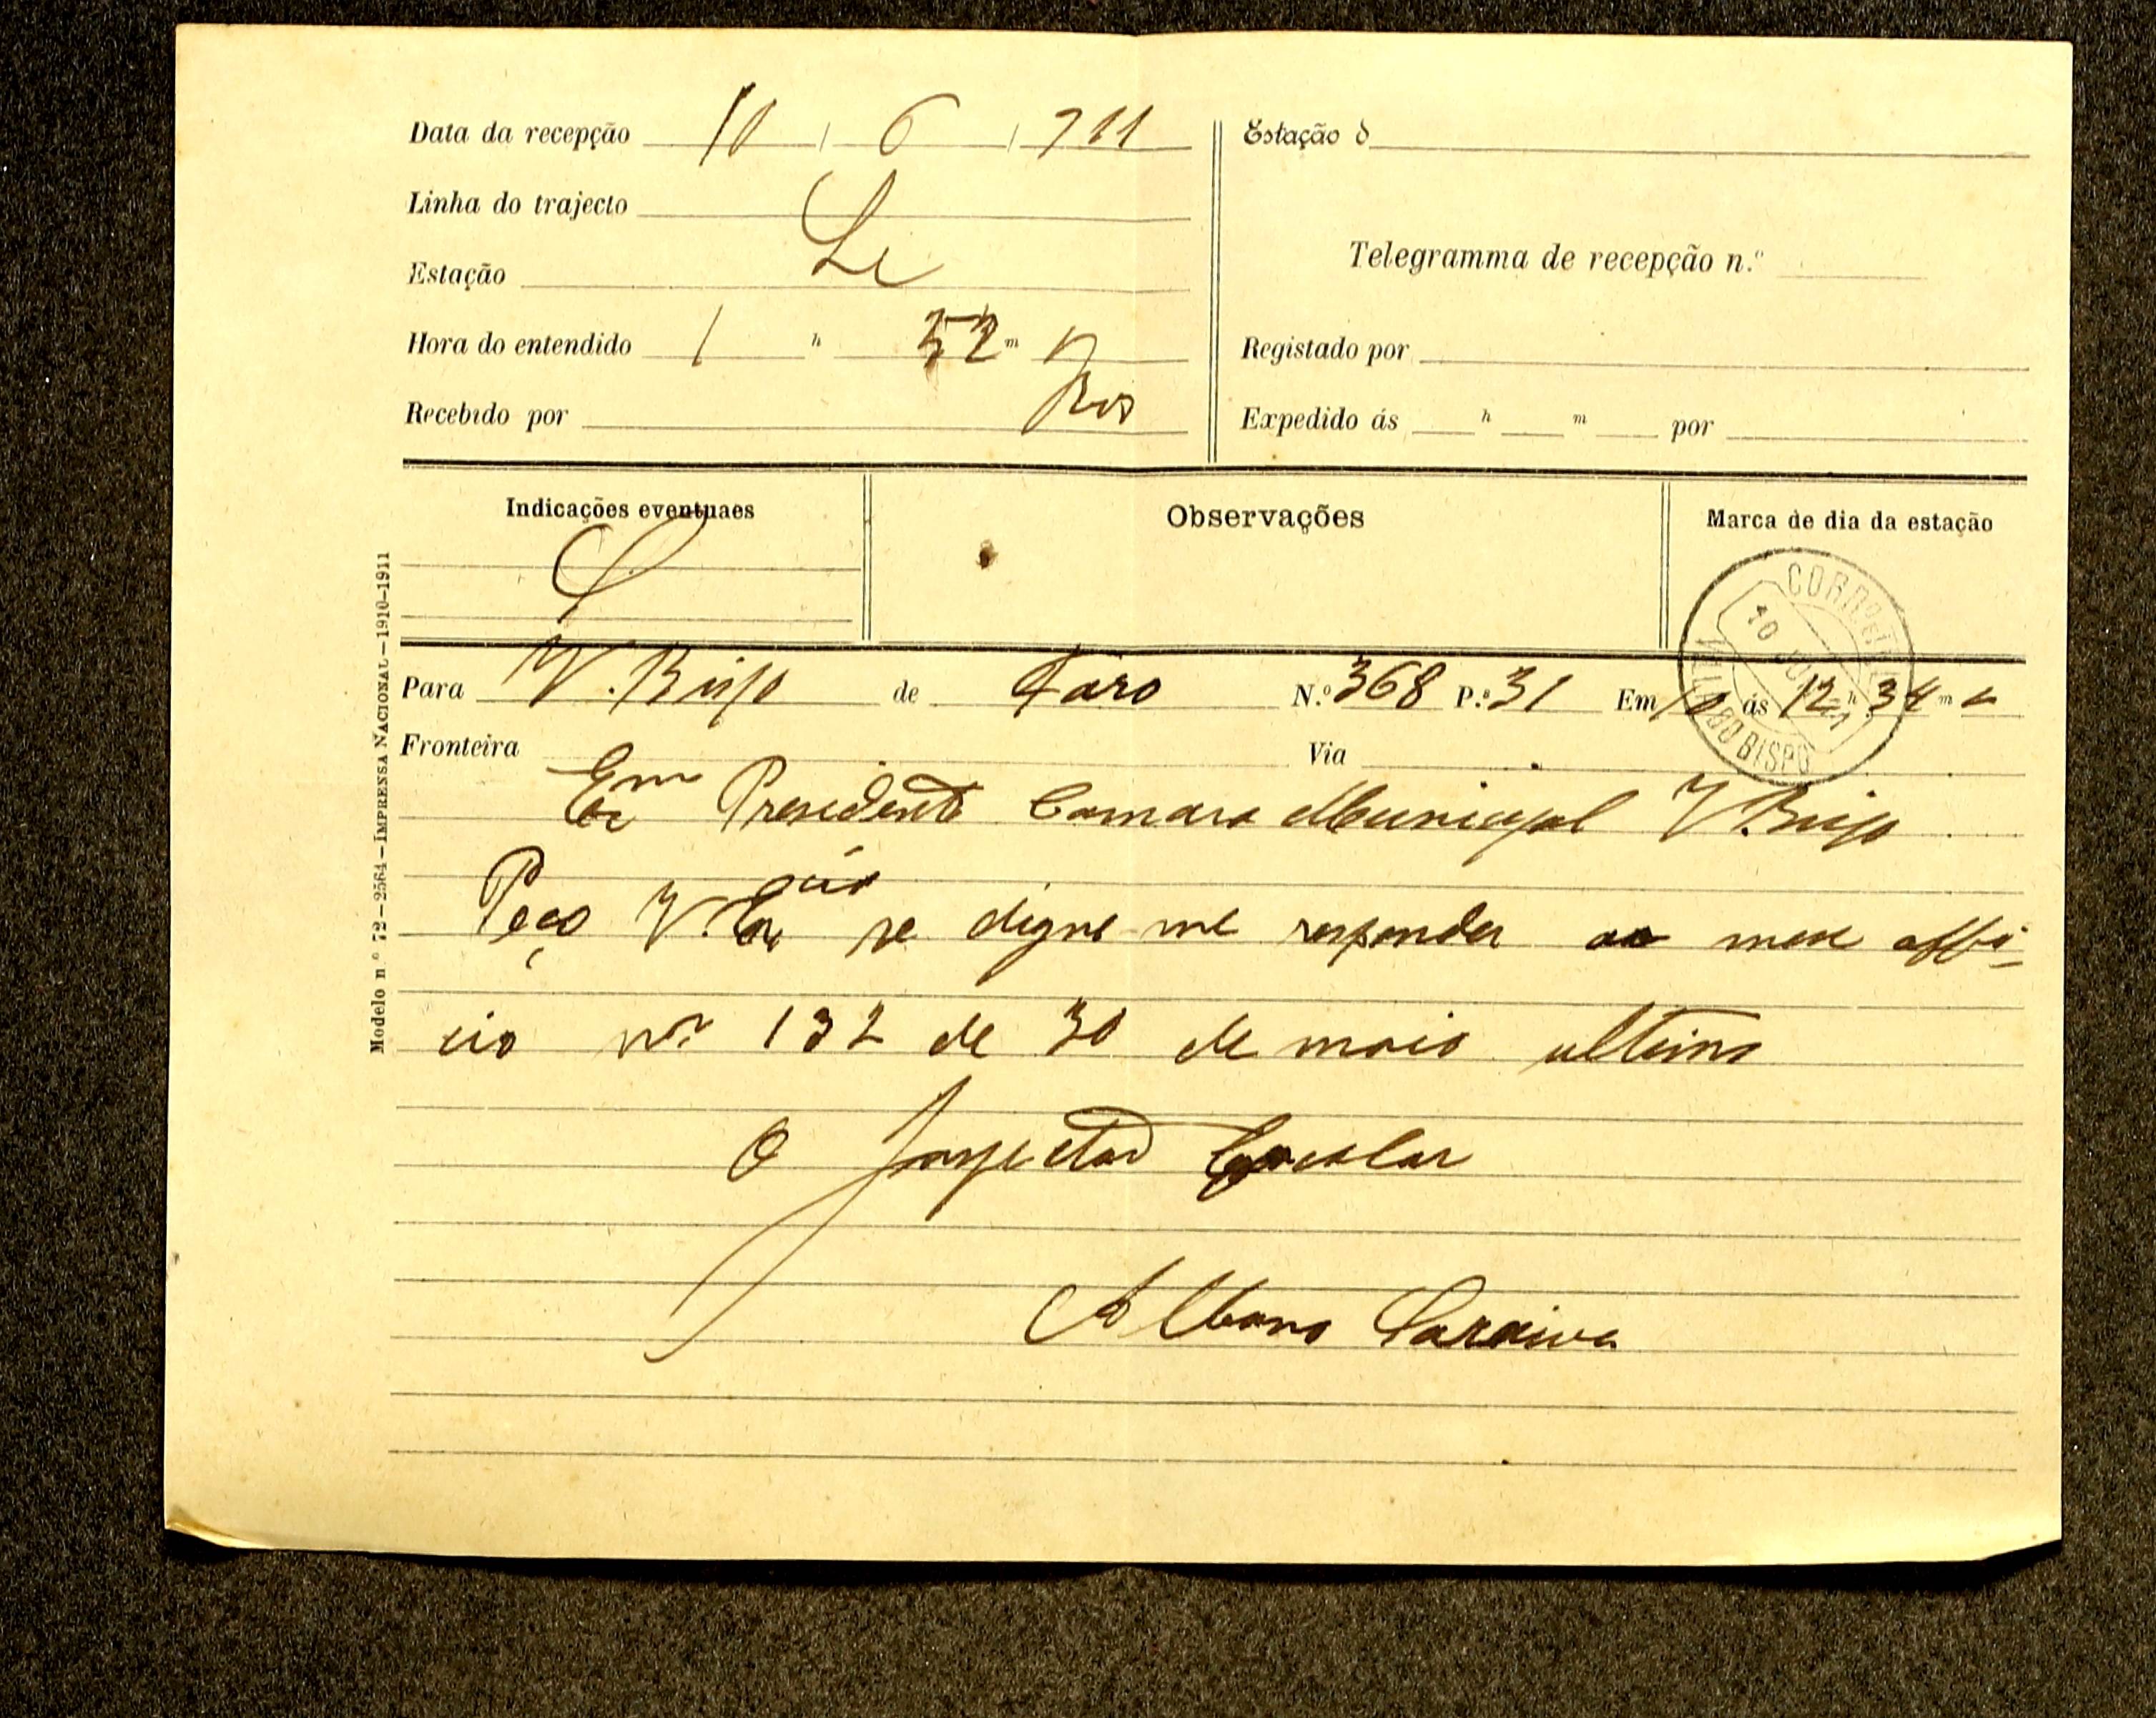 Data da recepção 10 / 6 / 911
Linha do trajecto
Estação
Hora do entendido 1 h 52 m
Recebido por
Estação d
Telegramma de recepção n.º
Registado por
Expedido ás h m por
Indicações eventuaes
Observações
Marca de dia da estação
CORRº E TEL
10 JUN 11
VILLA DO BISPO
Para V. Bispo de Faro N.º 368 P.ª 31 Em 10 ás 12 h 34 m
Fronteira Via
Exmº Presidente Camara Municipal V. Bispo
Peço V. Exª se digne me responder ao meu offi-
cio nº 132 de 30 de maio ultimo
O Inspector Escolar
Albano Saraiva
Modelo n.º 72-2564-IMPRENSA NACIONAL-1910-1911